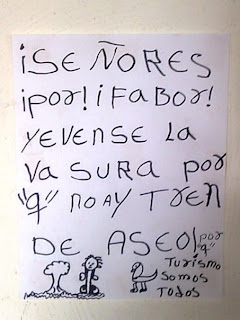 ¡SEÑORES
¡por! ¡FABOR!
YEVENSE LA
VASURA por
"q" no AY TREN
DE ASEO/por "q"
Turismo
Somos
Todos